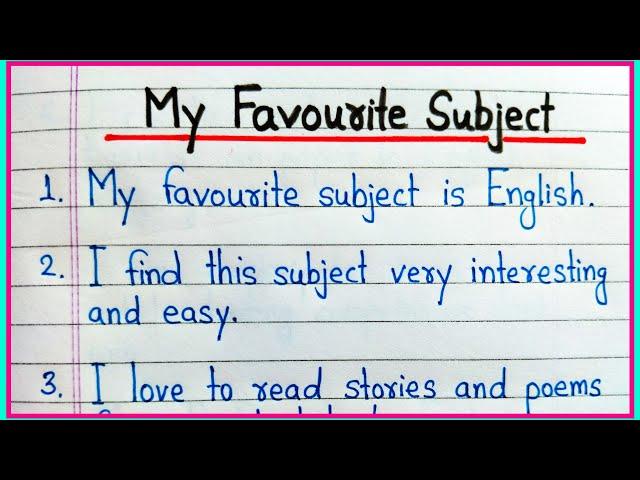 My Favourite Subject
1. My favourite subject is English.
2. I find this subject very interesting
and easy.
3. I love to read stories and poems